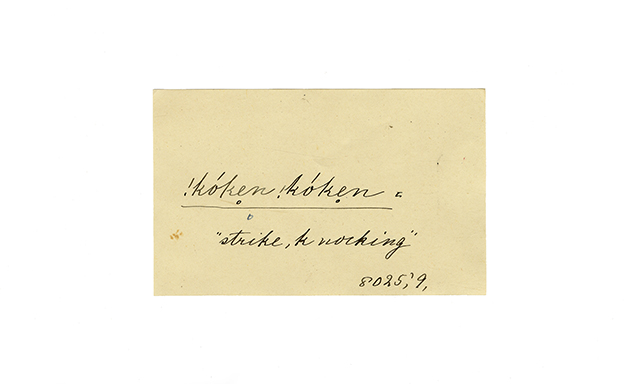 !kóken̥ !kóken̥ =
"strike, knocking"
8025,'9,